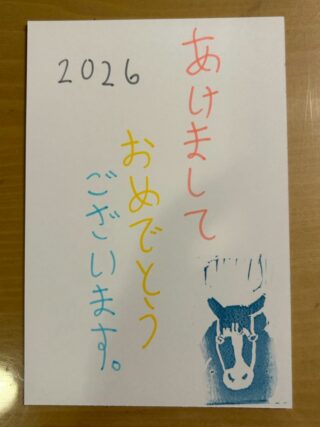 2026
あけまして
おめでとう
ございます。